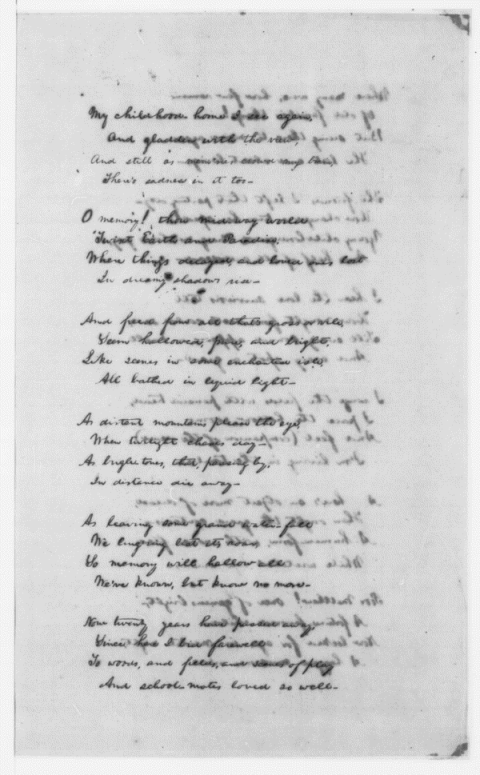 My childhood-home I see again,
And gladden with the view;
And still as mem'ries crowd my brain,
There's sadness in it too—
O memory! thou mid-way world
'Twixt Earth and Paradise,
Where things decayed, and loved ones lost
In dreamy shadows rise—
And freed from all that's gross or vile,
Seem hallowed, pure, and bright,
Like scenes in some enchanted isle,
All bathed in liquid light—
As distant mountains please the eye,
When twilight chases day—
As bugle-tones, that, passing by,
In distance die away—
As leaving some grand water-fall
We ling'ring, list it's roar,
So memory will hallow all
We've known, but know no more—
Now twenty years have passed away,
Since here I bid farewell
To woods, and fields, and scenes of play
And school-mates loved so well—